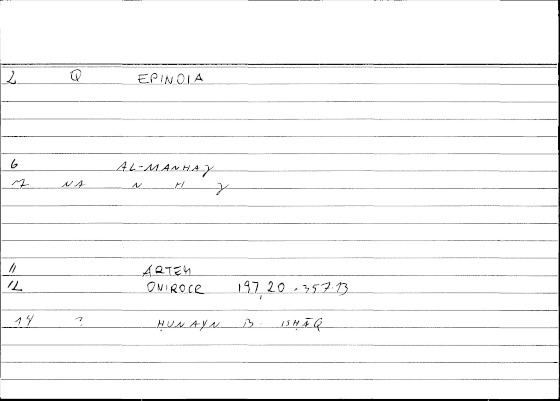 2 Q EPINOIA
6 AL-MANHAJ
NA N H J
11 ARTEM
12 ONIROCR 197,20 - 357.13
14 ? ḤUNAYN B. ISḤĀQ